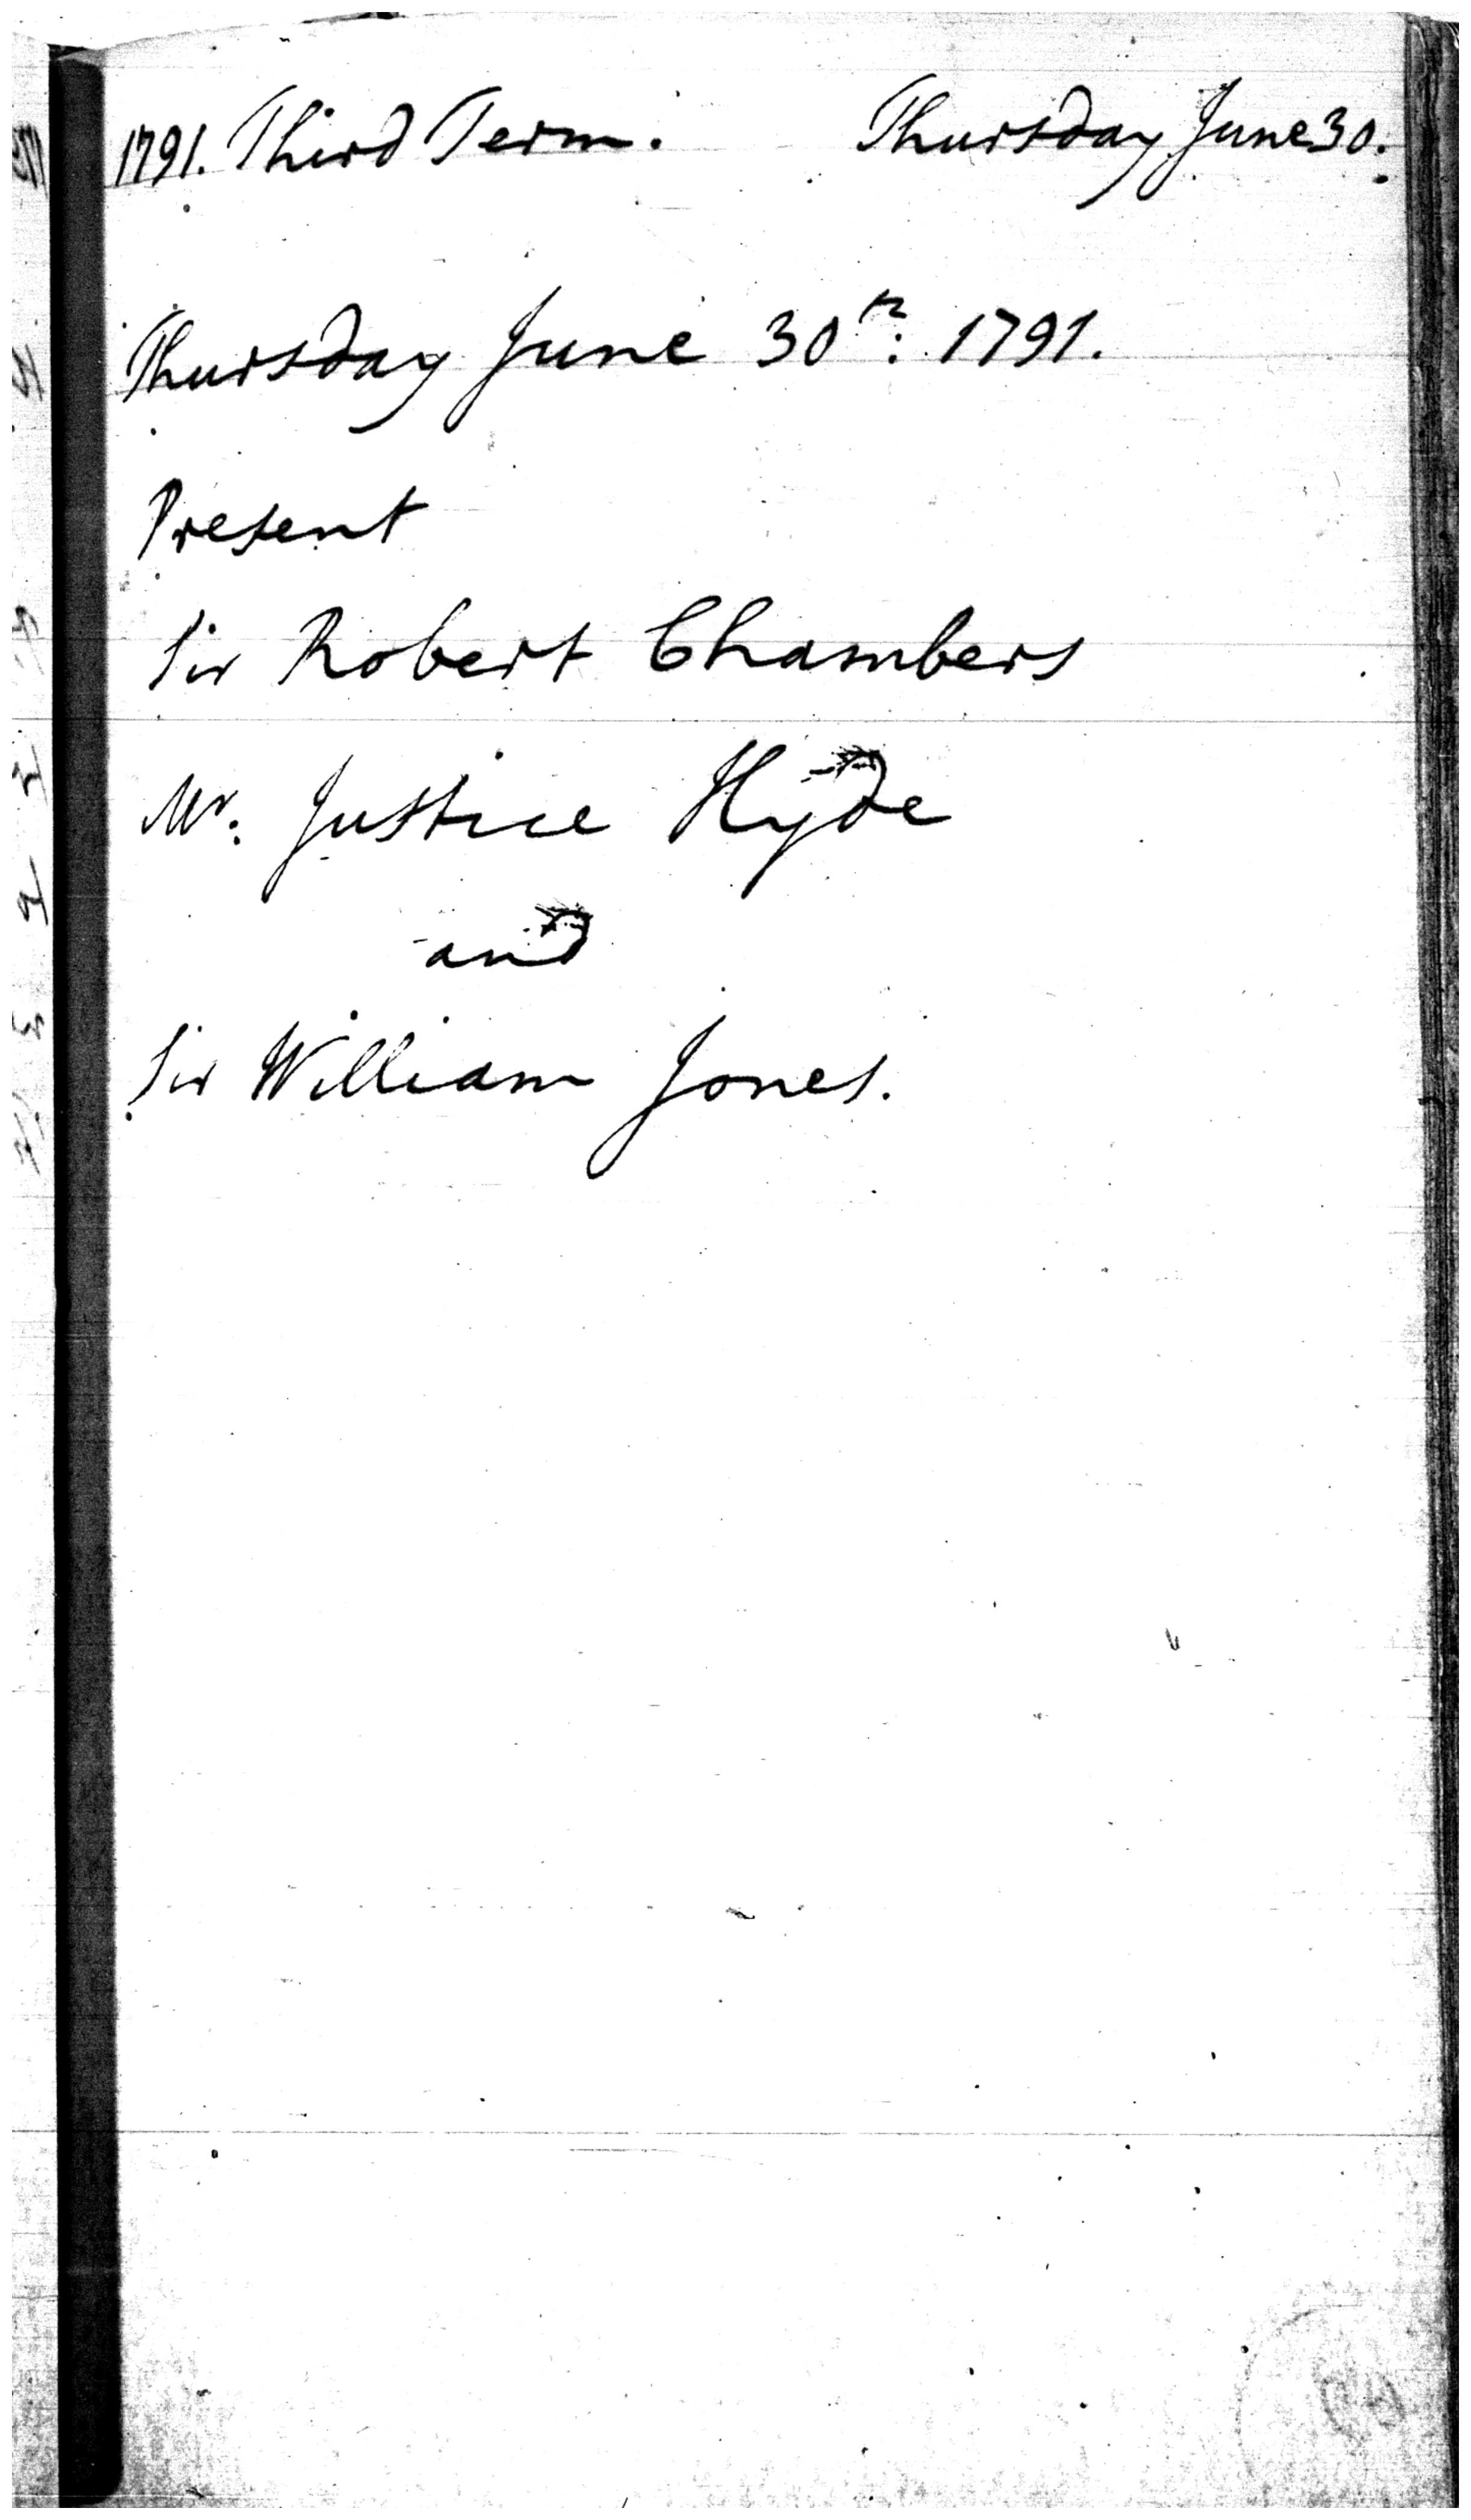 1791. Third Term. Thursday June 30.
Thursday June 30th: 1791.
Present
Sir Robert Chambers
Mr. Justice Hyde
and
Sir William Jones.